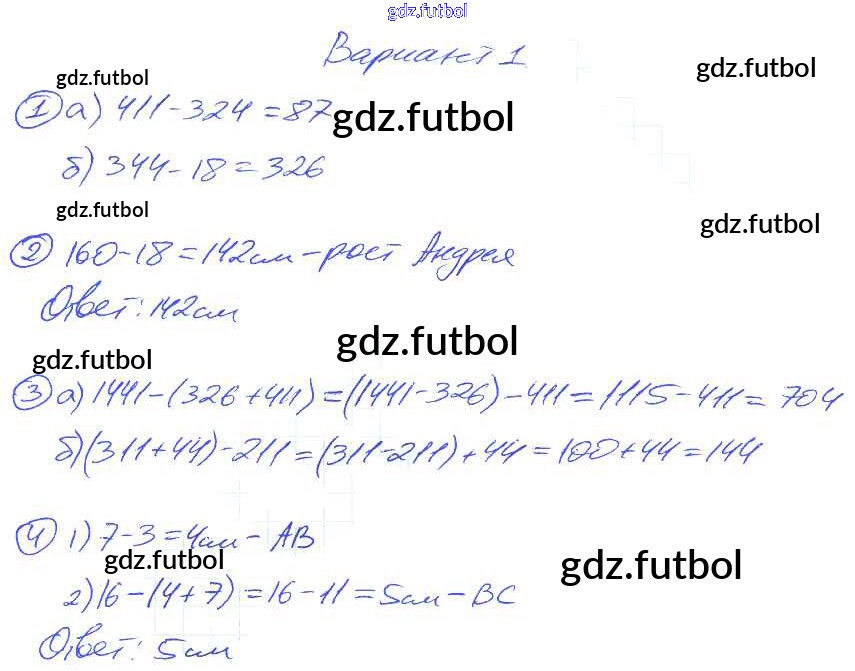 gdz.futbol
Вариант 1
gdz.futbol
gdz.futbol
① а) 411 - 324 = 87
gdz.futbol
б) 344 - 18 = 326
gdz.futbol
gdz.futbol
② 160 - 18 = 142см - рост Андрея
Ответ: 142см
gdz.futbol
gdz.futbol
③ а) 1441 - (326 + 411) = (1441 - 326) - 411 = 1115 - 411 = 704
б) (311 + 44) - 211 = (311 - 211) + 44 = 100 + 44 = 144
④ 1) 7 - 3 = 4см - АВ
gdz.futbol
gdz.futbol
2) 16 - (4 + 7) = 16 - 11 = 5см - ВС
Ответ: 5см